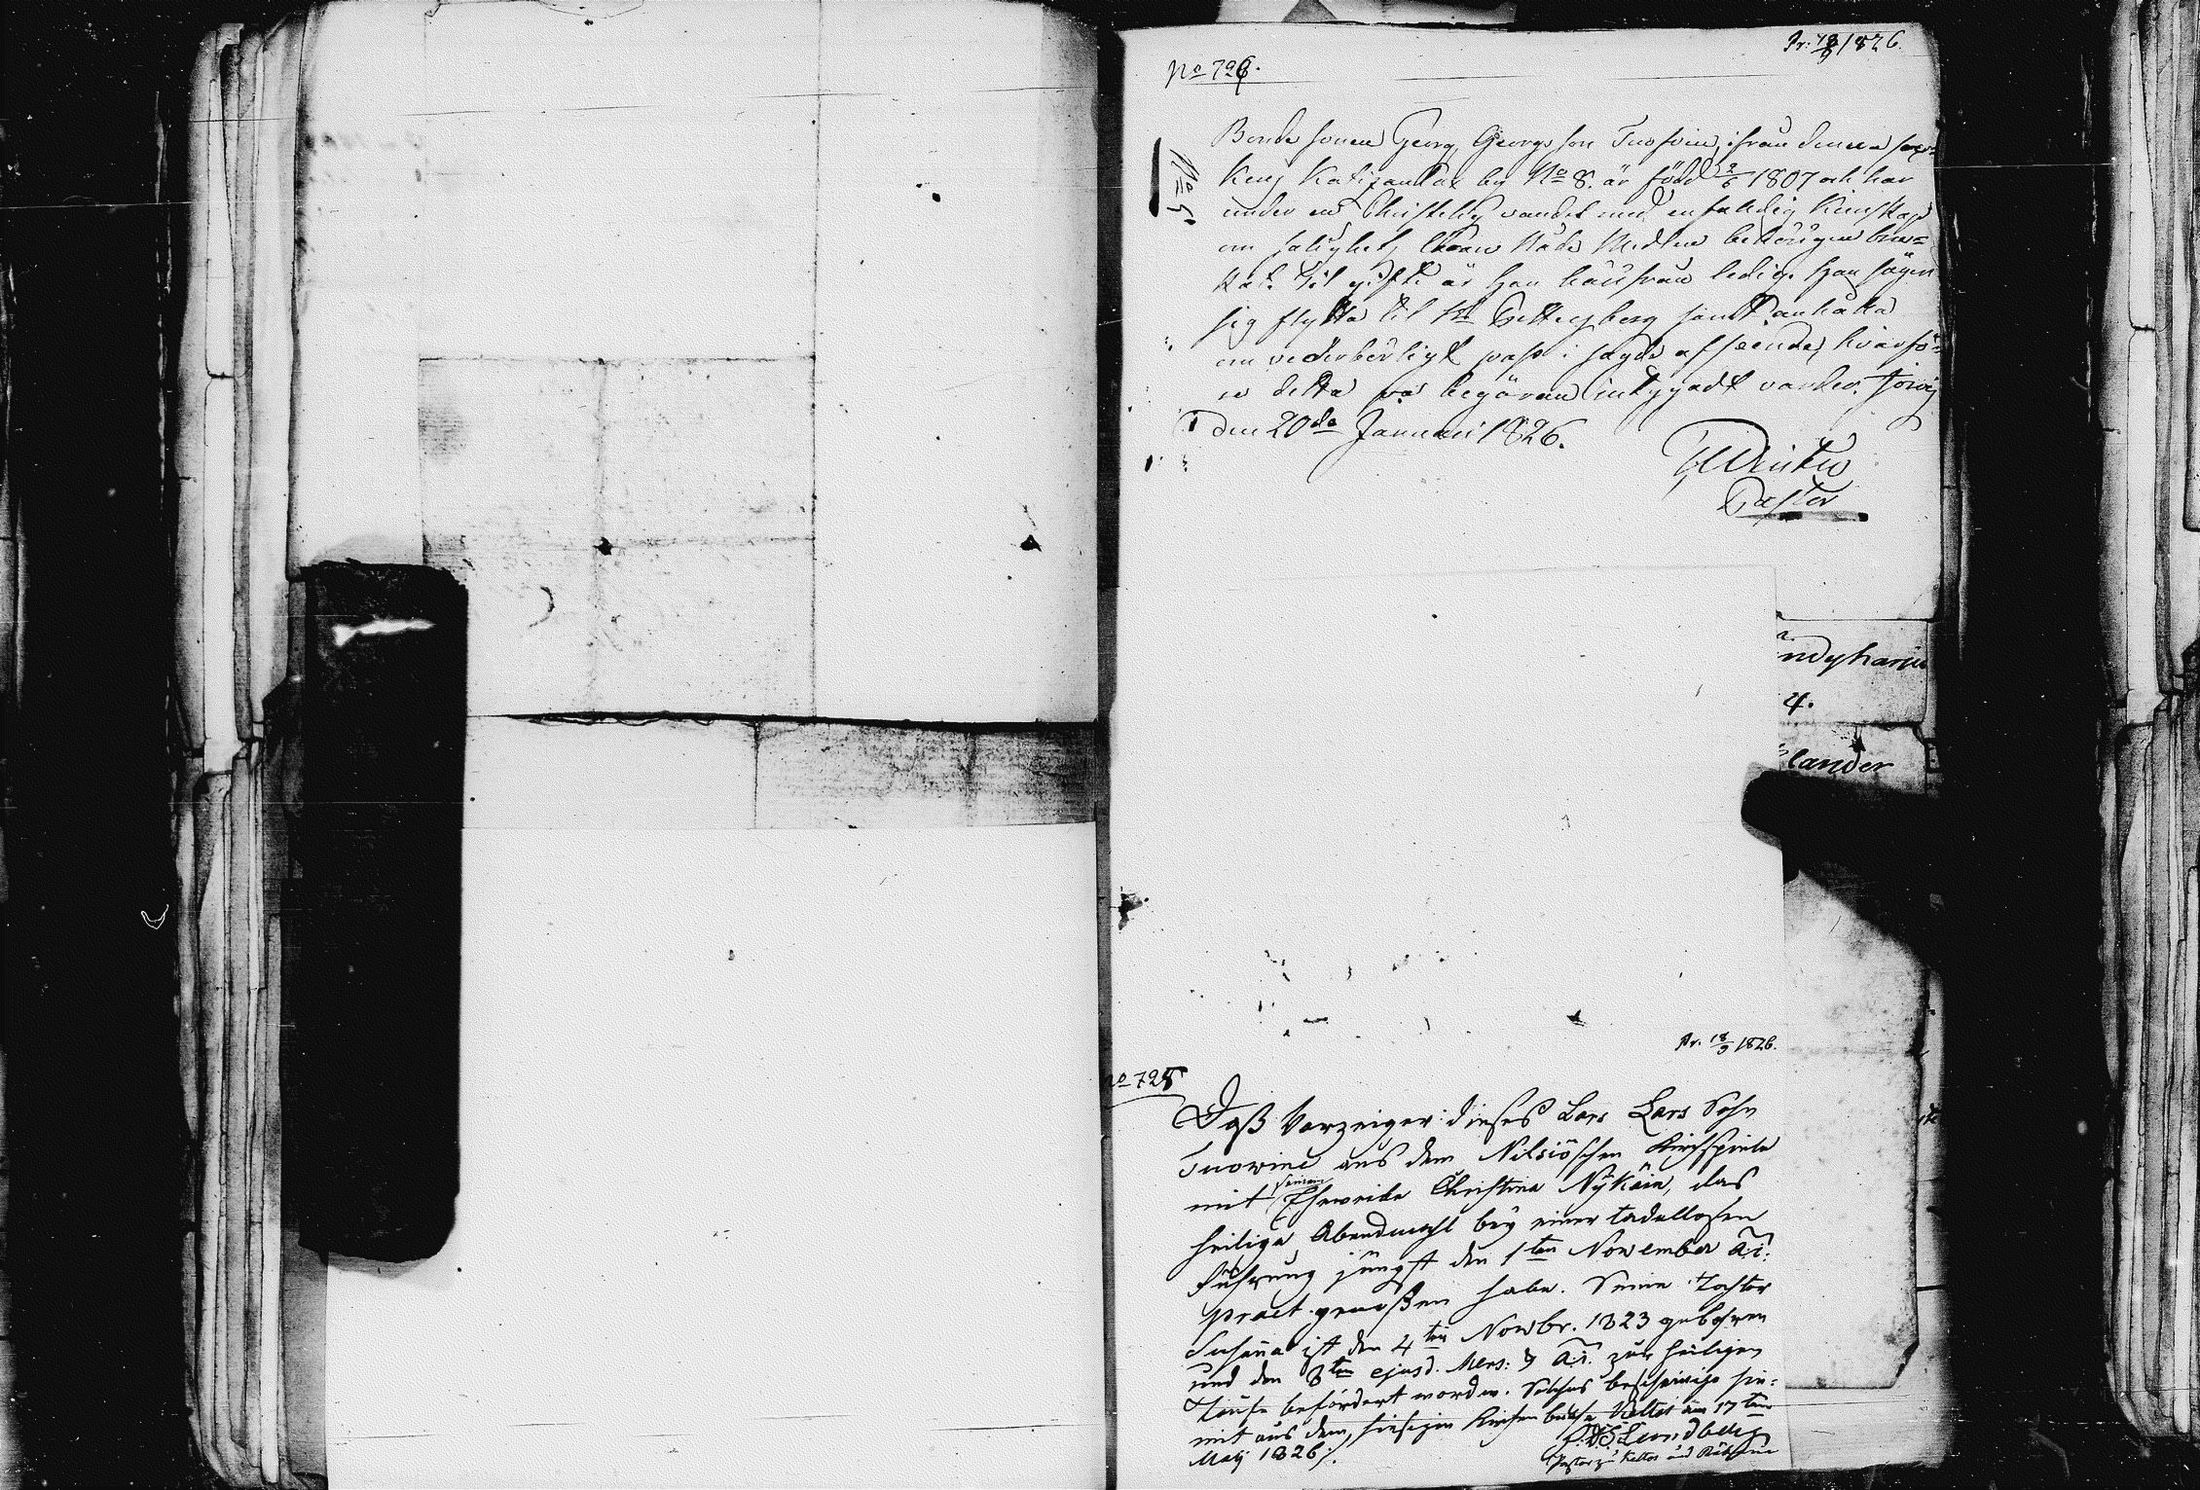 Pr: 18/9 1826.
No 726.
Bonde sonen Georg Georgsson Tuovin, ifrån denna soc=
kens by No 8. är född 2/6 1807 och har
under en Christelig vandel med enfaldig kunskap
om salighets läran Nåde Medlen behörigen bru=
kat. Til gifte är han härifrån ledig. Han säger
sig flytta til St. Pettersberg samt anhålla
om vederbörligt pass i sagde afseende, hvarfö=
re detta på begäran intygadt varder.
den 20de Januarii 1826.
Pastor
No 5.
4.
lander
Pr. 18/9 1826.
No 725
Daß Vorzeiger dieses Lars Lars Sohn
Tuowine aus dem Nilsiöschen Kirchspiele
mit seinem Eheweibe Christina Nÿkäin, das
heilige Abendmahl beÿ einer tadellosen
Führung jüngst den 1ten November a. i.
praet. genoßen habe. Seine Tochter
Susanna ist den 4ten Novbr. 1823 gebohren
und den 8ten ejusd. Mens: & a. i. zur heiligen
Taufe befördert worden. Solches bescheinige hie=
mit aus dem hiesigen Kirchenbuche Keltos am 17ten
Maÿ 1826./.
Lundberg
Pastor zu Keltos und